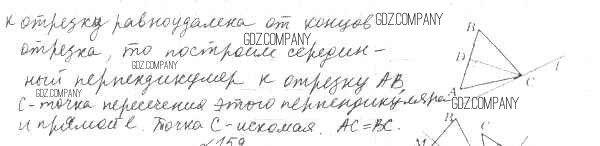 к отрезку равноудалена от концов GDZ.COMPANY
отрезка, то построим середин- GDZ.COMPANY
GDZ.COMPANY
ный перпендикуляр к отрезку AB,
GDZ.COMPANY
C-точка пересечения этого перпендикуляра GDZ.COMPANY
и прямой l. Точка C-искомая. AC=BC.
B
D
A
C
l
№159
B
C
M